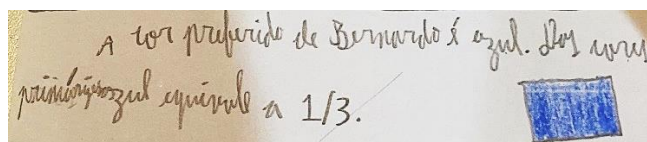 A cor preferido de Bernardo é azul. Das cores
primárias azul equivale a 1/3.